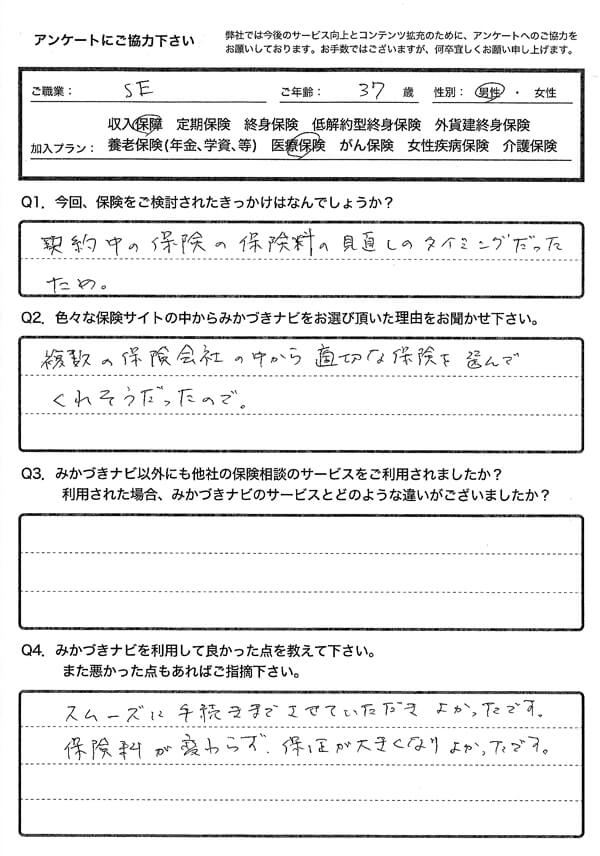 アンケートにご協力下さい
弊社では今後のサービス向上とコンテンツ拡充のために、アンケートへのご協力を
お願いしております。お手数ではございますが、何卒宜しくお願い申し上げます。
ご職業： SE ご年齢： 37 歳 性別： 男性 ・ 女性
収入保障 定期保険 終身保険 低解約型終身保険 外貨建終身保険
加入プラン： 養老保険(年金、学資、等) 医療保険 がん保険 女性疾病保険 介護保険
Q1. 今回、保険をご検討されたきっかけはなんでしょうか？
契約中の保険の保険料の見直しのタイミングだった
ため。
Q2. 色々な保険サイトの中からみかづきナビをお選び頂いた理由をお聞かせ下さい。
複数の保険会社の中から適切な保険を選んで
くれそうだったので。
Q3. みかづきナビ以外にも他社の保険相談のサービスをご利用されましたか？
利用された場合、みかづきナビのサービスとどのような違いがございましたか？
Q4. みかづきナビを利用して良かった点を教えて下さい。
また悪かった点もあればご指摘下さい。
スムーズに手続きまでさせていただきよかったです。
保険料が変わらず、保証が大きくなりよかったです。